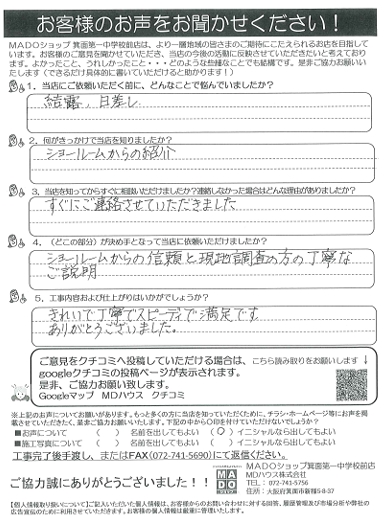 お客様のお声をお聞かせください！
MADOショップ 箕面第一中学校前店は、より一層地域の皆さまのご期待にこたえられるお店を目指しています。お客様のご意見を聞かせていただき、当店の今後の活動に反映させていただきたいと考えております。よかったこと、うれしかったこと・・・どのような些細なことでも結構です。是非ご協力お願いいたします（できるだけ具体的に書いていただけると助かります！）
1．当店にご依頼いただく前に、どんなことで悩んでいましたか？
結露、日差し
2．何がきっかけで当店を知りましたか？
ショールームからの紹介
3．当店を知ってからすぐに相談いただけましたか？連絡しなかった場合はどんな理由がありましたか？
すぐにご連絡させていただきました
4．（どこの部分）が決め手となって当店に依頼いただけましたか？
ショールームからの信頼と現地調査の方の丁寧な
ご説明
5．工事内容および仕上がりはいかがでしょうか？
きれいで丁寧でスピーディで満足です
ありがとうございました。
ご意見をクチコミへ投稿していただける場合は、こちら読み取りをお願いします ↓
googleクチコミの投稿ページが表示されます。
是非、ご協力お願い致します。
Googleマップ MDハウス クチコミ
※上記のお声についてお願いがあります。もっと多くの方に当店を知っていただくために、チラシ・ホームページ等にお声を掲載させていただきたく、是非ご協力お願いいたします。下記の中から〇印を付けていただけないでしょうか？
■お声について （ ） 名前を出してもよい （〇）イニシャルなら出してもよい
■施工写真について （ ） 名前を出してもよい （ ）イニシャルなら出してもよい
工事完了後手渡し、またはFAX(072-741-5690)にて返信ください。
ご協力誠にありがとうございました！！
MADO
MADOショップ箕面第一中学校前店
MDハウス株式会社
TEL：072-741-5756
住所：大阪府箕面市新稲5-8-37
【個人情報取り扱いについて】ご記入いただいた個人情報は、お客様からのお問い合わせに対する回答、履歴管理及び市場分析や弊社の広告宣伝のために利用させていただきます。お客様の個人情報は厳重に管理いたします。